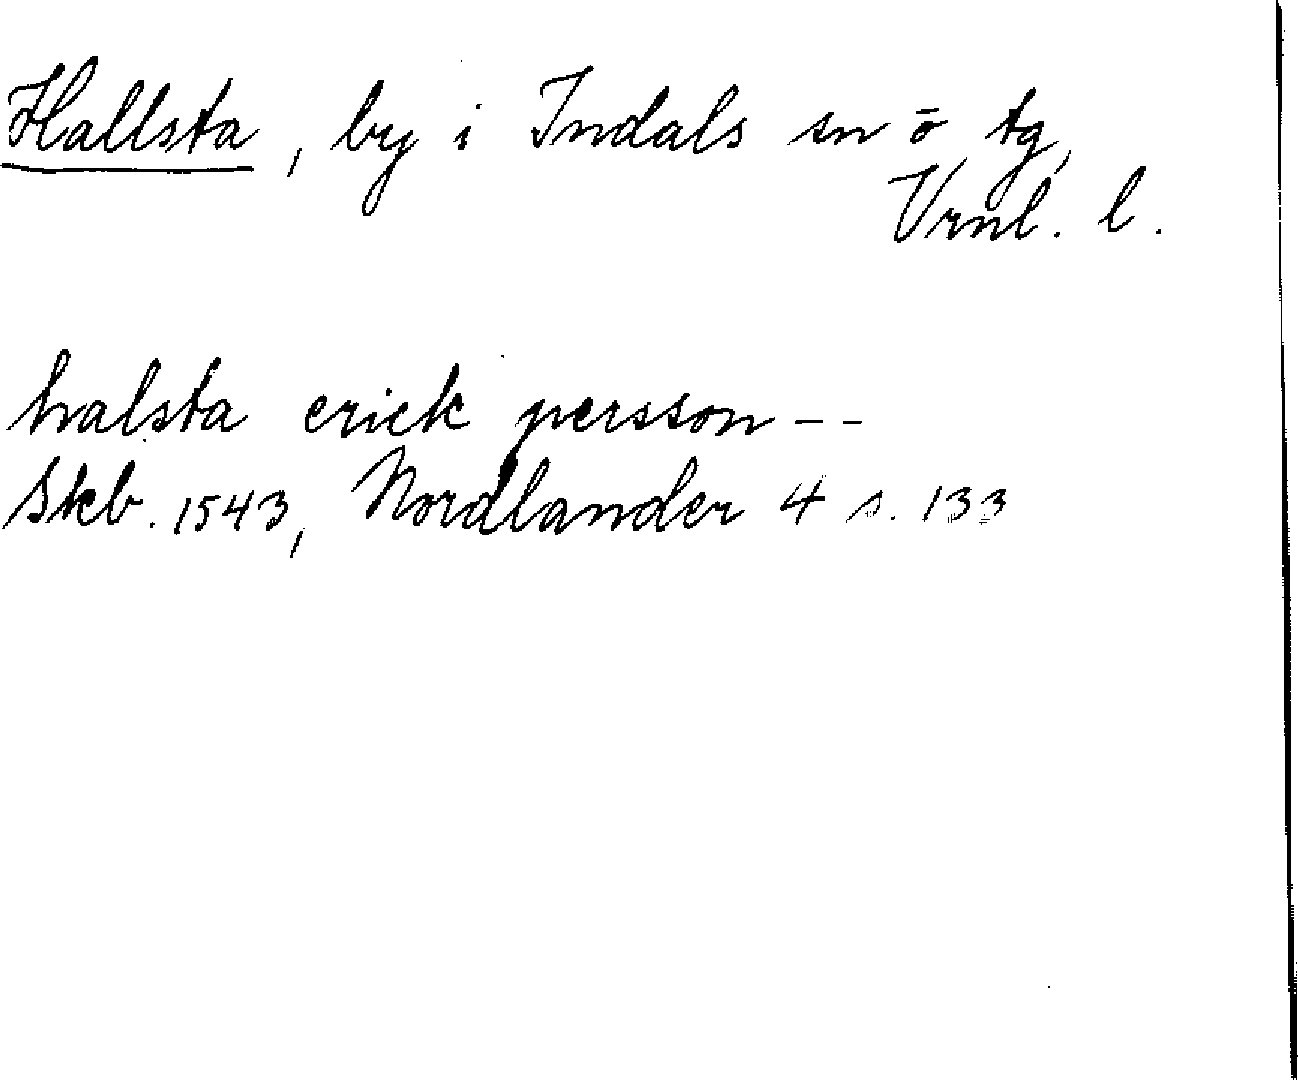 Hallsta, by i Indals sn ö tg,
Vrnl. l.
halsta erick persson - -
Skb. 1543, Nordlander 4 s. 133